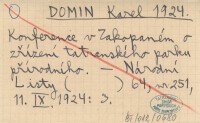 DOMIN Karel 1924.
Konference v Zakopaném o
zřízení tatranského parku
přírodního. — Národní
Listy ( ) 64, nr 251,
11. IX. 1924: 3.